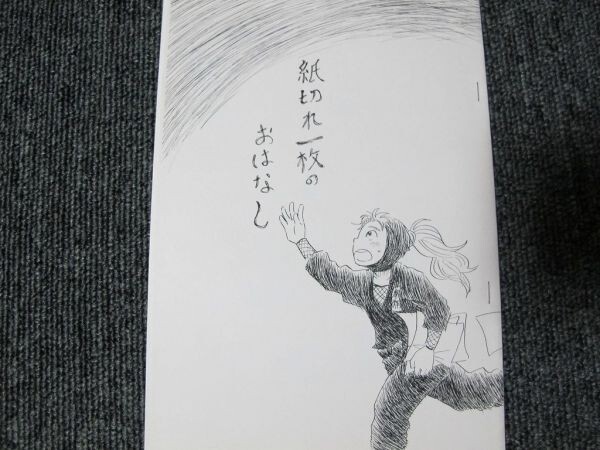 紙切れ一枚の
おはなし